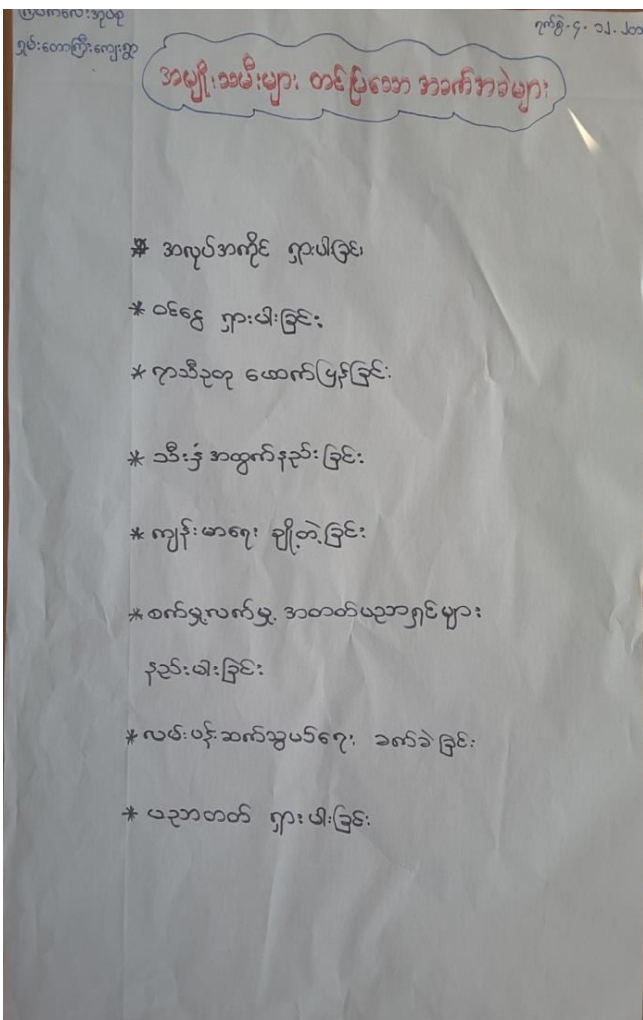 ရှမ်းတောကြီးကျေးရွာ
ရက်စွဲ-၄-၁၂-၂၀၁
အမျိုးသမီးများ တင်ပြသော အခက်အခဲများ
* အလုပ်အကိုင် ရှားပါးခြင်း
* ဝင်ငွေ ရှားပါးခြင်း
* ရာသီဥတု ဖောက်ပြန်ခြင်း
* သီးနှံ အထွက်နည်းခြင်း
* ကျန်းမာရေး ချို့တဲ့ခြင်း
* စက်မှု့လက်မှု့ အတတ်ပညာရှင်များ
နည်းပါးခြင်း
* လမ်းပန်းဆက်သွယ်ရေး ခက်ခဲခြင်း
* ပညာတတ် ရှားပါးခြင်း